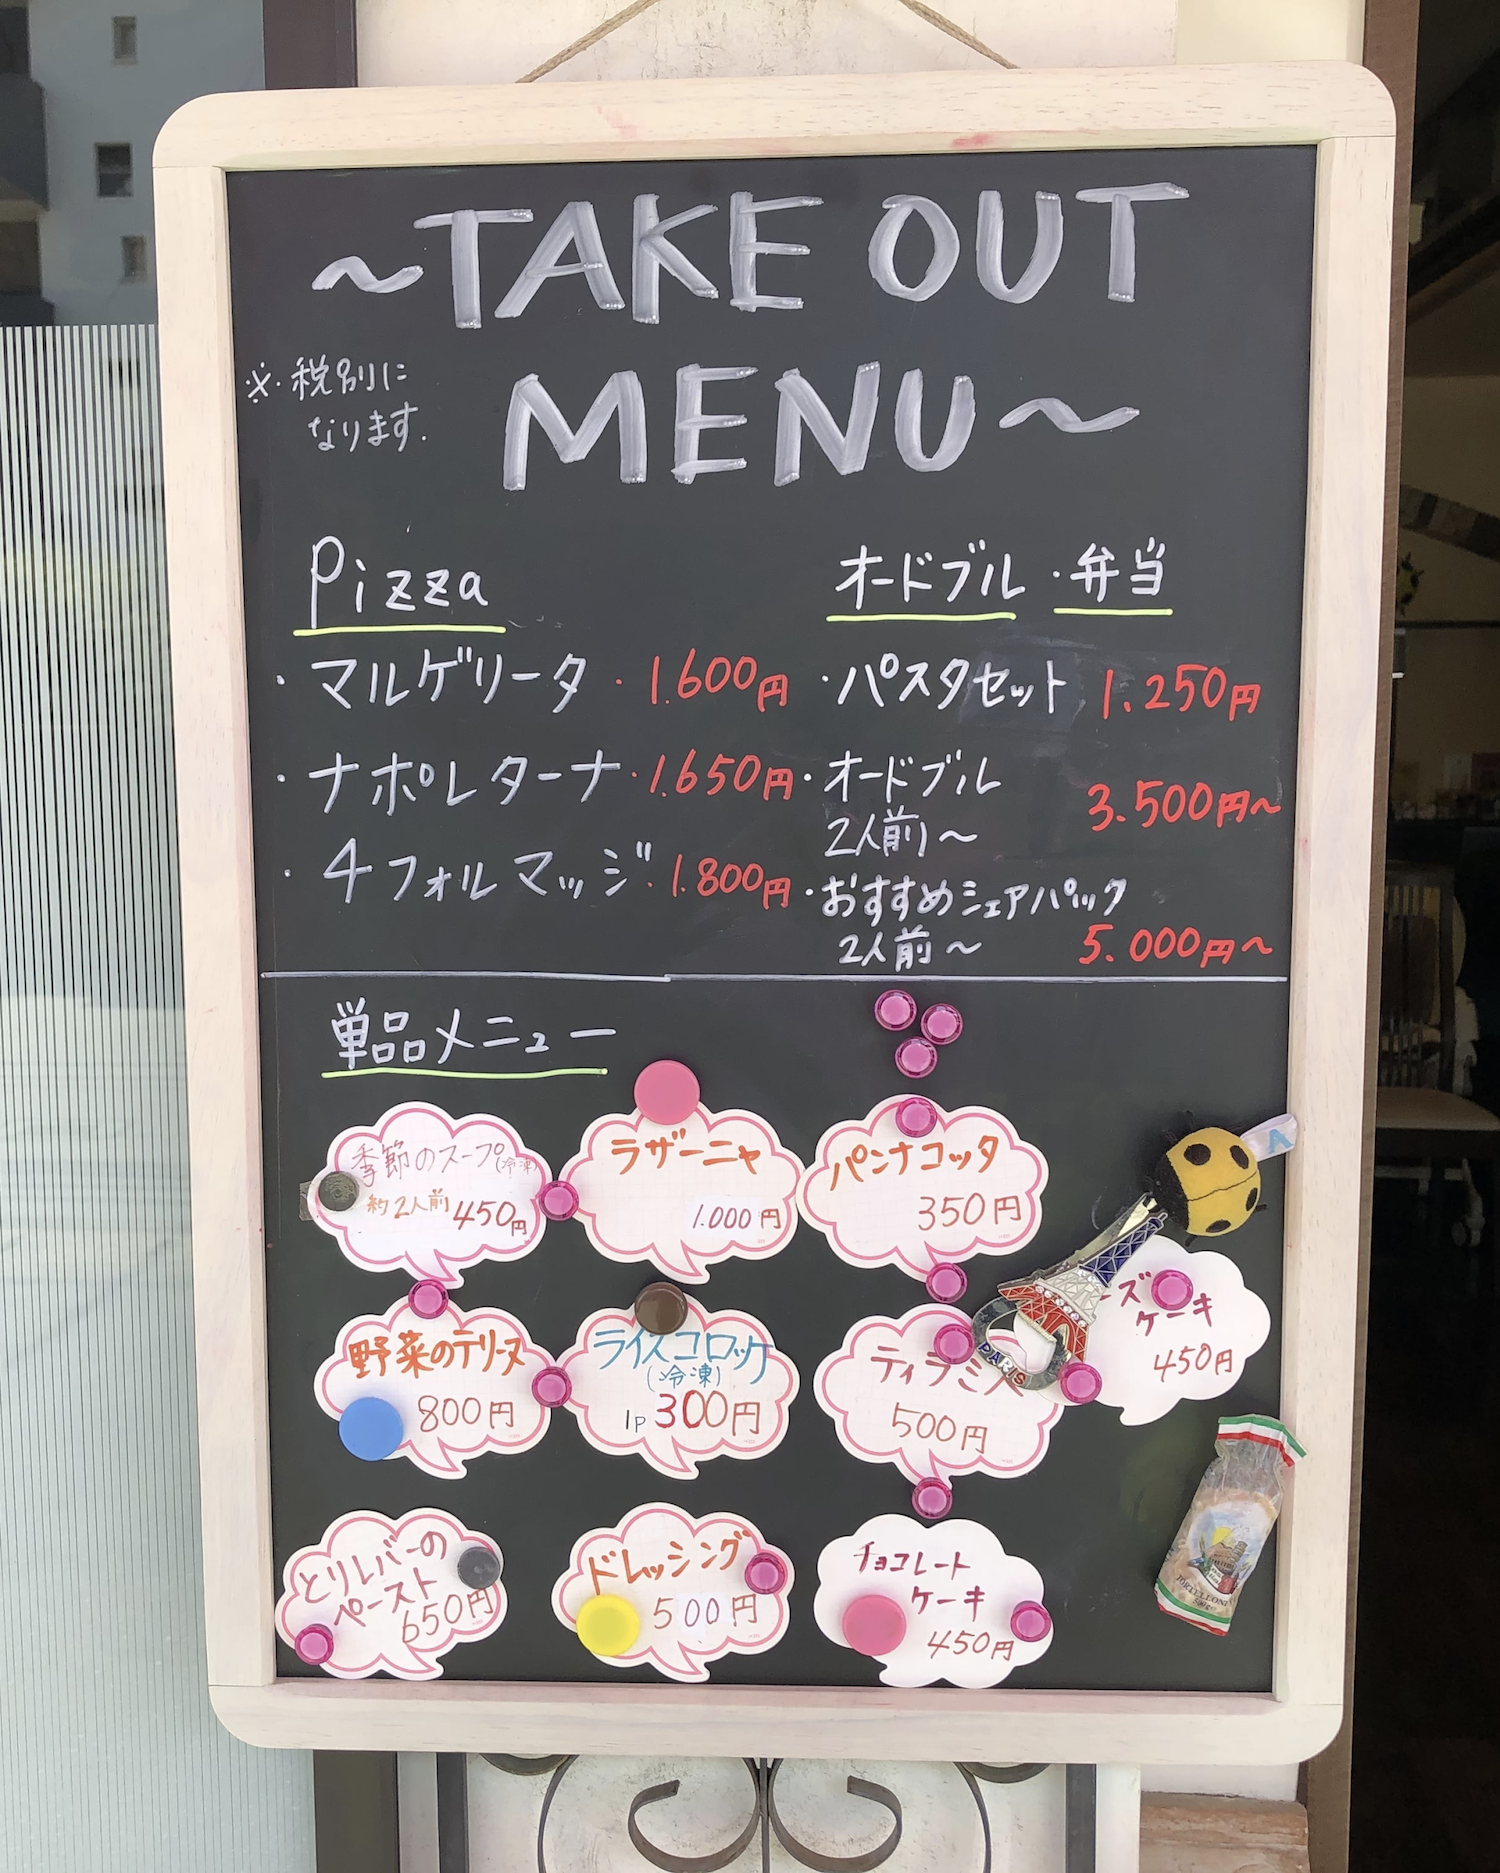 ~TAKE OUT
MENU~
※税別に
なります.
Pizza
・マルゲリータ・1.600円
・ナポレターナ・1.650円
・4フォルマッジ・1.800円
オードブル・弁当
・パスタセット 1.250円
・オードブル
2人前~ 3.500円~
・おすすめシェアパック
2人前~ 5.000円~
単品メニュー
季節のスープ(冷凍)
約2人前 450円
ラザーニャ
1.000円
パンナコッタ
350円
野菜のテリーヌ
800円
ライスコロッケ
(冷凍)
1P 300円
ティラミス
500円
ーズ
ケーキ
450円
とりレバーの
ペースト
650円
ドレッシング
500円
チョコレート
ケーキ
450円
PARIS
A
TORTELLONI
500g